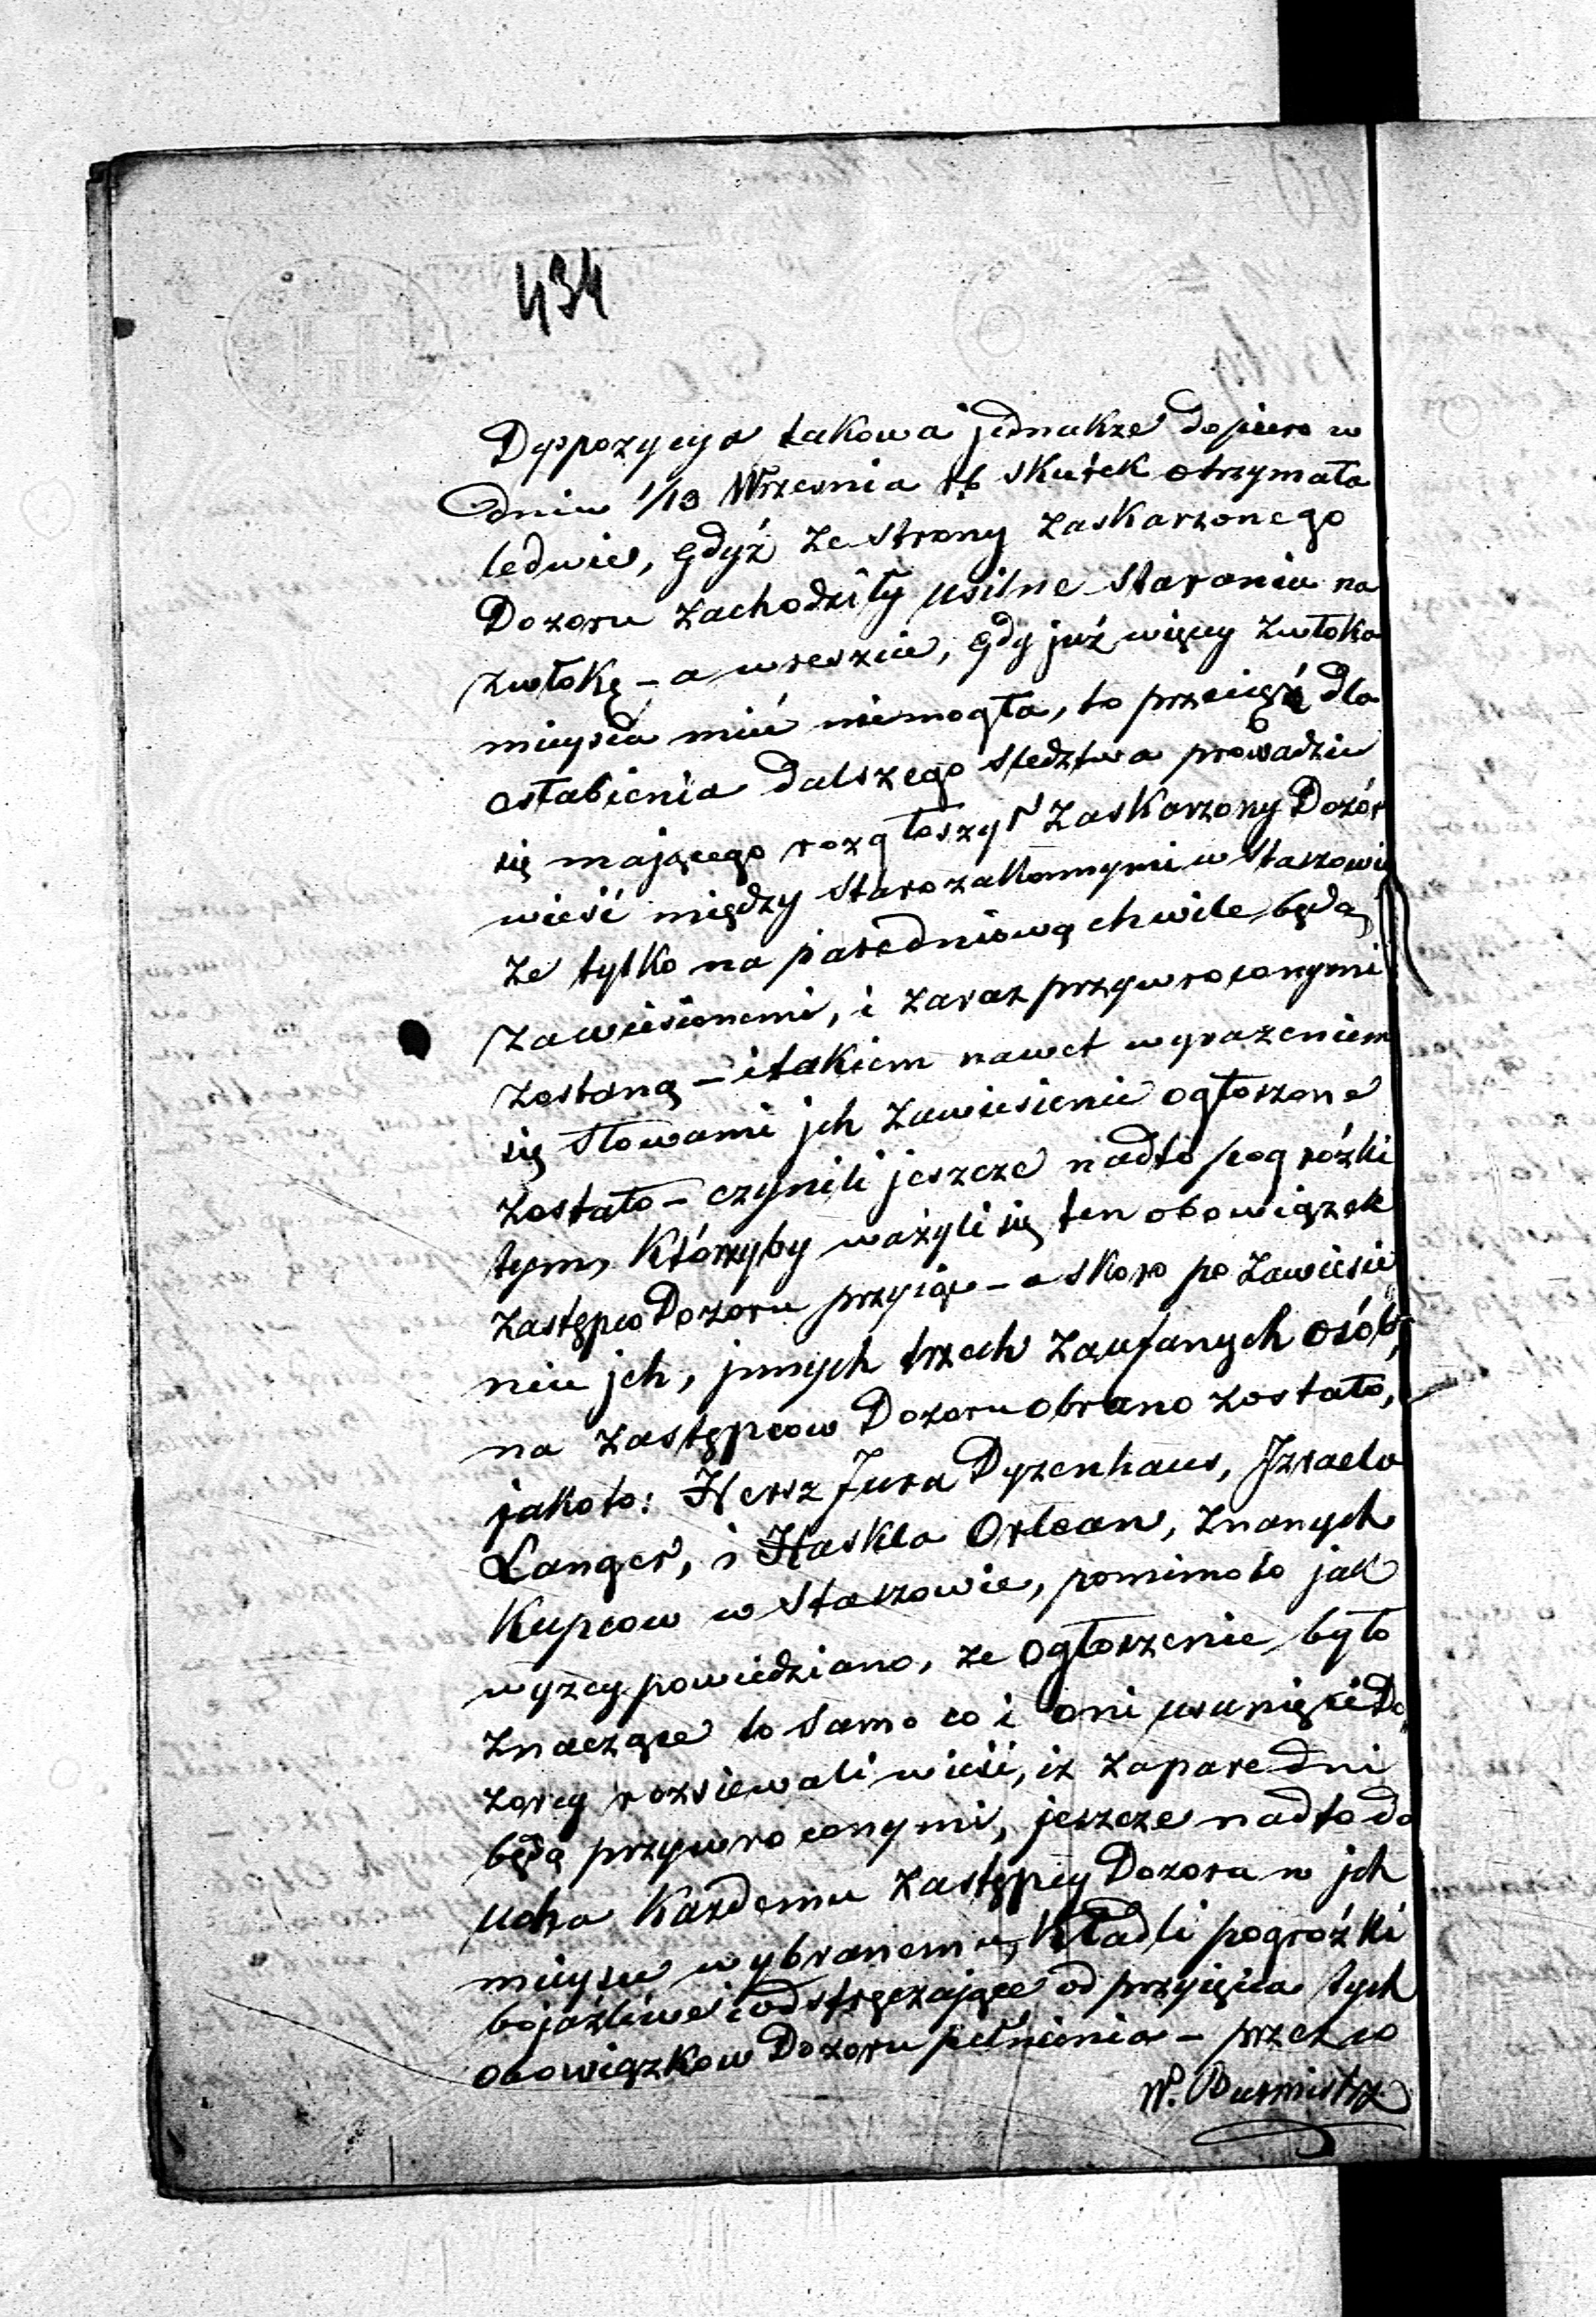 434
Dyspozycya takowa jednakże dopiero w
dniu 1/13 Wrzesnia rb skutek otrzymała
ledwie, gdyż ze strony zaskarzonego
Dozoru zachodziły usilne starania na
zwłokę – a wreszcie, gdy już więcy zwłoka
mieysca mieć niemogła, to przecięż dla
osłabienia dalszego sledztwa prowadzic
się mającego rozgłoszył zaskarzony Dozór
wieść między Starozakonnymi w Staszowie
że tylko na paredniową chwile będą
zawieszonemi, i zaraz przywroconymi
zostaną – i takiem nawet wyrazeniem
się słowami jch zawieszenie ogłoszone
zostało – czynili jeszcze nadto pogróżki
tym, którzyby ważyli się ten obowiązek
zastępco Dozoru przyiąc – a skoro po zawiesie
niu jch, jnnych trzech zaufanych osób,
na zastępcow Dozoru obrano zostało,
jakoto: Hersz Jura Dyzenhaus, Jzraela
Langer, i Haskla Orlean, znanych
kupcow w Staszowie, pomimo to jak
wyzey powiedziano, ze ogłoszenie było
znaczące to samo co i oni usunięci Do„
zorcy rozsiewali wieści, iz zaparedni
będą przywroconymi, jeszcze nadto do
ucha kazdemu zastępcy Dozoru w jch
mieysce wybranemu, kładli pogróżki
bojaźliwe i odstręczające od przyięcia tych
obowiązkow Dozoru pełnienia – przez co
W. Burmistrz